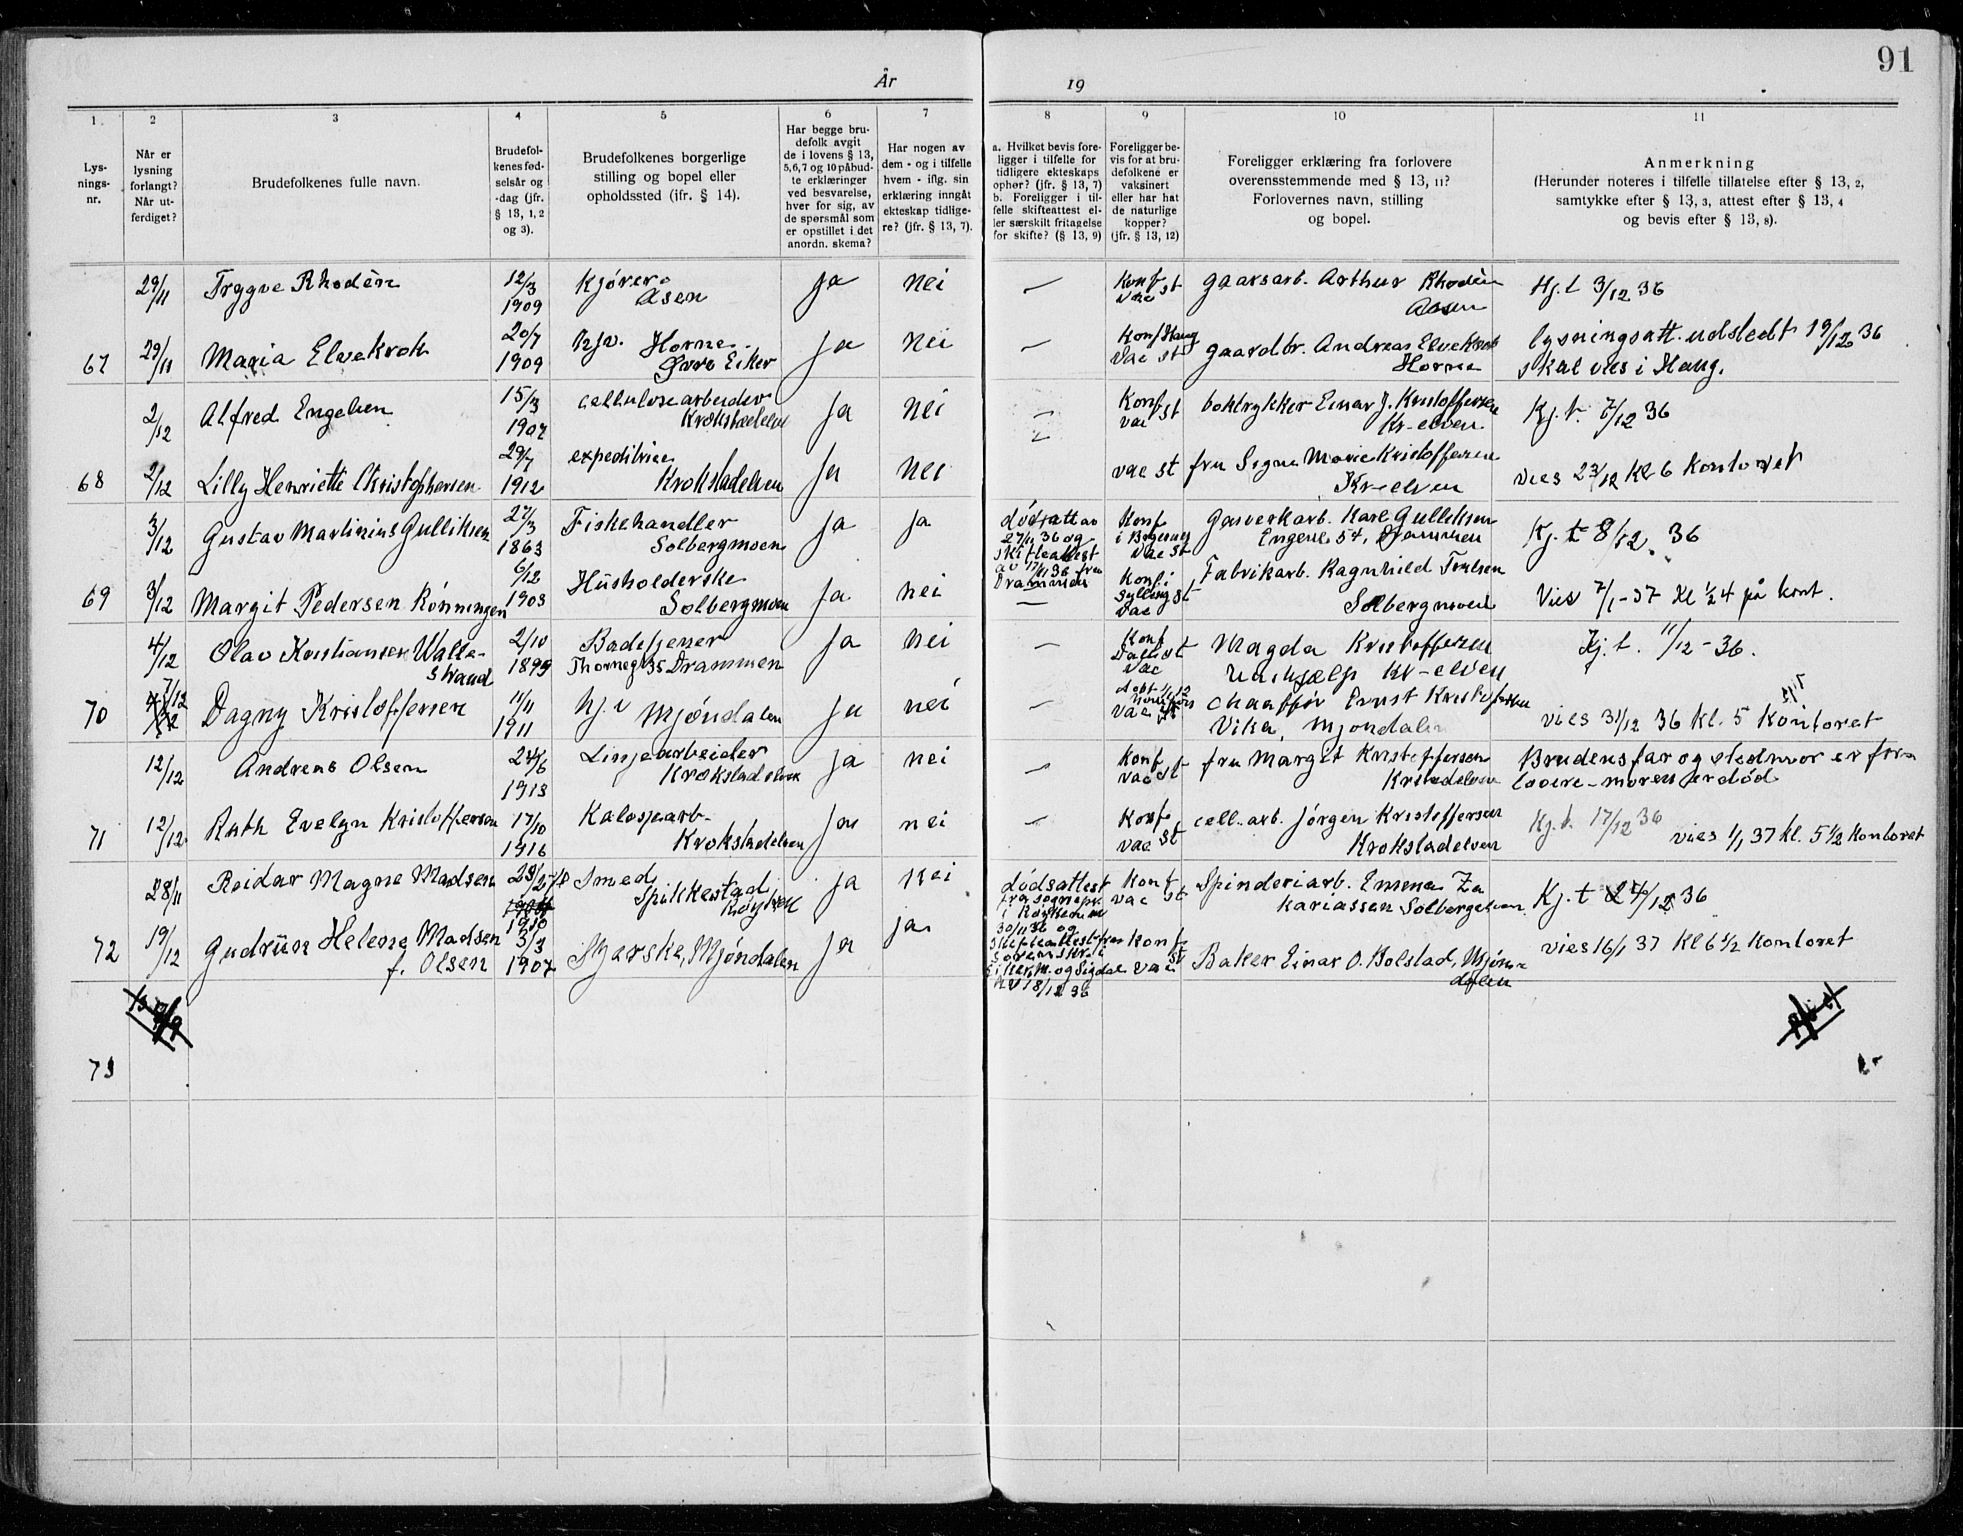 91
År 19
1 2 3 4 5 6 7 8 9 10 11
Lys-
nings-
nr.
Når er
lysning
forlangt?
Når ut-
ferdiget?
Brudefolkenes fulle navn.
Brudefol-
kenes fød-
selsår og
-dag (jfr.
§ 13, 1, 2
og 3).
Brudefolkenes borgerlige
stilling og bopel eller
opholdssted (ifr. § 14).
Har begge bru-
defolk avgit
de i lovens § 13,
5,6,7 og 10 påbud-
te erklæringer
ved besvarelse,
hver for sig, av
de spørsmål som
er opstillet i det
anordn. skema?
Har nogen av
dem - og i tilfelle
hvem - iflg. sin
erklæring inngått
ekteskap tidlige-
re? (jfr. § 13, 7).
a. Hvilket bevis fore-
ligger i tilfelle for
tidligere ekteskaps
ophør? (jfr. § 13, 7)
b. Foreligger i til-
felle skifteattest el-
ler særskilt fritagelse
for skifte? (§ 13, 9)
Foreligger be-
vis for at bru-
defolkene er
vaksinert
eller har hat
de naturlige
kopper?
(jfr. § 13, 12)
Foreligger erklæring fra forlovere
overensstemmende med § 13, 11?
Forlovernes navn, stilling
og bopel.
Anmerkning
(Herunder noteres i tilfelle tillatelse efter § 13, 2,
samtykke efter § 13, 3, attest efter § 13, 4
og bevis efter § 13, 8).
29/11 Trygve Rhodèn 12/3 1909 Kjører Åsen ja nei — Konf vac st gaarsarb. Arthur Rhodèn Aasen Kj.t 3/12 36
67 29/11 Maria Elvekrok 20/7 1909 hjv. Horne Øvre Eiker ja nei — Konf Haug vac st gaardbr. Andreas Elvekrok Horne lysningsatt. udstedt 19/12 36
skal vies i Haug.
2/12 Alfred Engelsen 15/3 1907 cellulosearbeider Krokstadelva ja nei — Konf vac st boktrykker Einar J. Kristoffersen Kr-elven Kj.t. 7/12 36
68 2/12 Lilly Henriette Christophersen 29/7 1912 expeditrise Krokstadelven ja nei vac st fru Signe Marie Kristoffersen Kr-elven vies 23/12 kl 6 Kontoret
3/12 Gustav Martinius Gulliksen 27/3 1863 Fiskehandler Solbergmoen ja ja dødsatt av 27/11 36 og skifteattest av 17/11 36 fra Drammen Konf i vac st Gasverkarb. Karl Gulliksen Engene 54, Drammen Kj. t 8/12. 36
69 3/12 Margit Pedersen Rönningen 6/12 1903 Husholderske Solbergmoen ja nei — Konf i Sylling st vac Fabrikarb. Ragnhild Solbergmoen Vies 7/1-37 Kl ½4 på kont.
4/12 Olav Kristiansen Walle-
Strand 2/10 1899 Badetjener Thornegt 35 Drammen ja nei — Konf vac st Magda Kristoffersen Kr-elven Kj. t. 11/12-36.
70 7/12 Dagny Kristoffersen 11/11 1911 hj. v Mjöndalen ja nei — vac chauffør Ernst Kristoffersen Vika, Mjøndalen vies 31/12 36 kl. 5 Kontoret
12/12 Andreas Olsen 24/6 1913 Linjearbeider Krokstadelven ja nei — Konf vac st fru Margit Kristoffersen Krstadelven Brudens far og stedmor er for-
lovere - moren er død
71 12/12 Ruth Evelyn Kristoffersen 17/10 1916 Kalosjearb. Krokstadelven ja nei — Konf vac st cell. arb. Jørgen Kristoffersen Krokstadelven Kj.t. 17/12 36
vies 1/1 37 kl. 5½ kontoret
28/11 Reidar Magne Madsen 1910 Smed, Spikkestad Røyken ja nei dødsattest fra sognepr. i Røyken av 30/11 36 og skifteattest fra sorenskr. i Eiker, M. og Sigdal av 18/12 36 Konf vac st Spinderiarb. Emma Za
kariassen Solbergelven Kj. t 24/12 36
72 19/12 Gudrün Helene Madsen
f. Olsen 3/3 1907 Mjøndalen ja ja Konf st vac Baker Einar O. Bolstad, Mjøn-
dalen vies 16/1 37 kl 6½ Kontoret
73